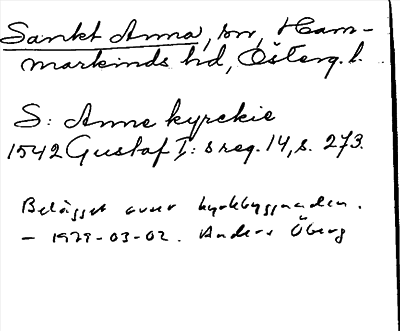 Sankt Anna, sn, Ham-
markinds hd, Österg. l.
S: Anne kyrckie
1542 Gustaf I:s reg. 14, s. 273.
Belägget avser kyrkbyggnaden.
- 1979-03-02. Anders Öberg